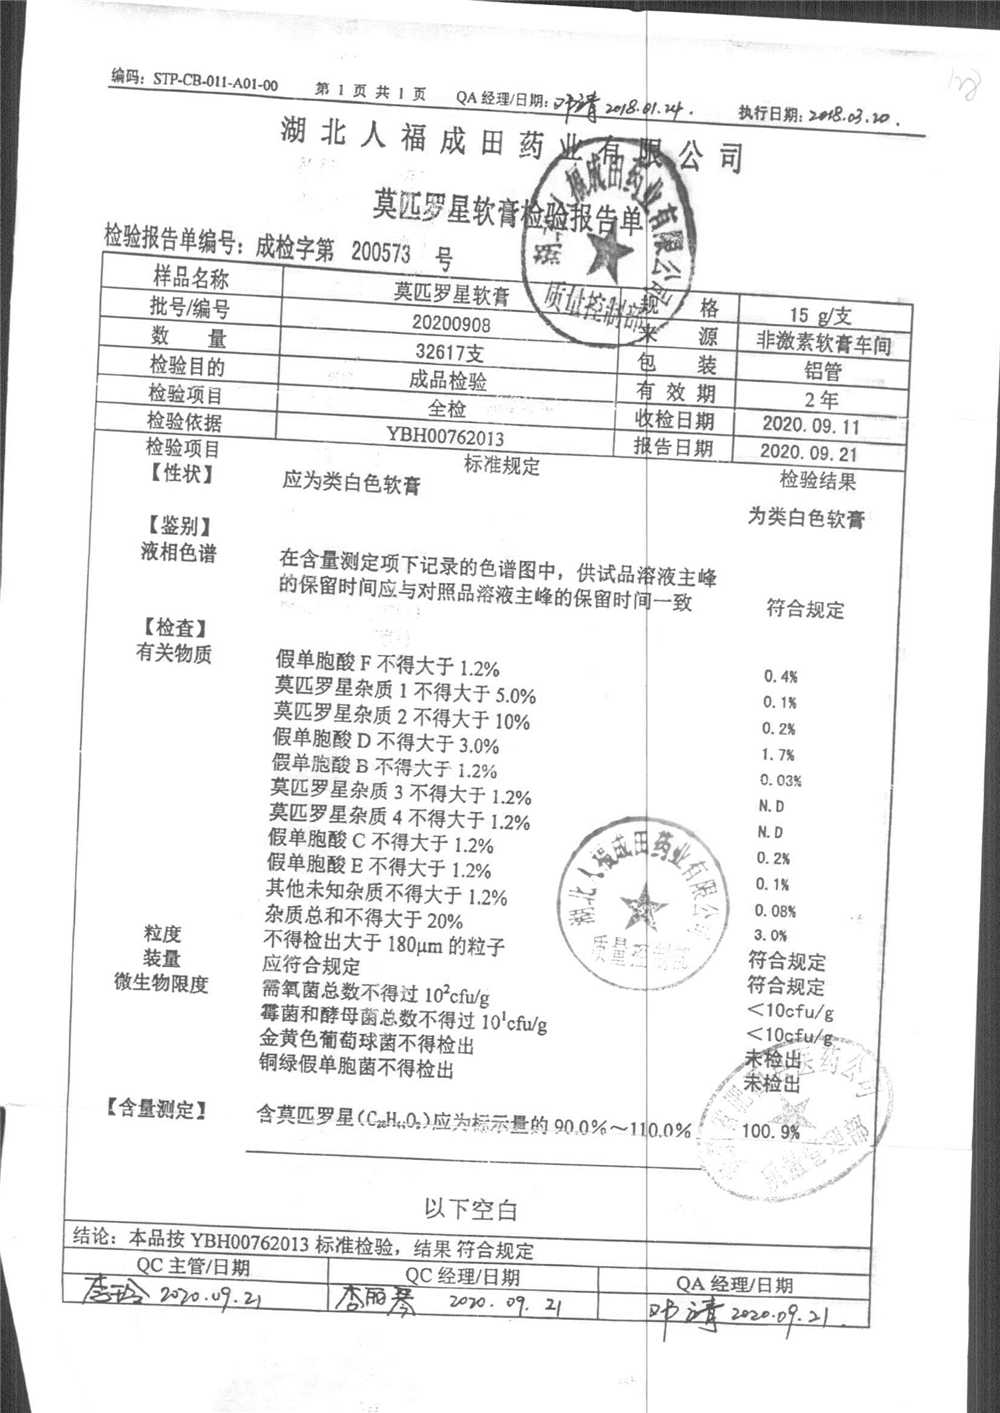 编码：STP-CB-011-A01-00 第 1 页 共 1 页 QA 经理/日期：邓靖 2018.01.24. 执行日期：2018.03.20.
湖北人福成田药业有限公司
莫匹罗星软膏检验报告单
检验报告单编号：成检字第 200573 号
样品名称 莫匹罗星软膏 规 格 15 g/支
批号/编号 20200908 来 源 非激素软膏车间
数 量 32617支 包 装 铝管
检验目的 成品检验 有 效 期 2 年
检验项目 全检 收检日期 2020.09.11
检验依据 YBH00762013 报告日期 2020.09.21
检验项目 标准规定 检验结果
【性状】 应为类白色软膏 为类白色软膏
【鉴别】
液相色谱 在含量测定项下记录的色谱图中，供试品溶液主峰
的保留时间应与对照品溶液主峰的保留时间一致 符合规定
【检查】
有关物质 假单胞酸 F 不得大于 1.2% 0.4%
莫匹罗星杂质 1 不得大于 5.0% 0.1%
莫匹罗星杂质 2 不得大于 10% 0.2%
假单胞酸 D 不得大于 3.0% 1.7%
假单胞酸 B 不得大于 1.2% 0.03%
莫匹罗星杂质 3 不得大于 1.2% N.D
莫匹罗星杂质 4 不得大于 1.2% N.D
假单胞酸 C 不得大于 1.2% 0.2%
假单胞酸 E 不得大于 1.2% 0.1%
其他未知杂质不得大于 1.2% 0.08%
杂质总和不得大于 20% 3.0%
粒度 不得检出大于 180μm 的粒子 符合规定
装量 应符合规定 符合规定
微生物限度 需氧菌总数不得过 10²cfu/g <10cfu/g
霉菌和酵母菌总数不得过 10¹cfu/g <10cfu/g
金黄色葡萄球菌不得检出 未检出
铜绿假单胞菌不得检出 未检出
【含量测定】 含莫匹罗星(C₂₆H₄₄O₉)应为标示量的 90.0%～110.0% 100.9%
以下空白
结论：本品按 YBH00762013 标准检验，结果 符合规定
QC 主管/日期 QC 经理/日期 QA 经理/日期
李玲 2020.09.21 李丽琴 2020.09.21 邓靖 2020.09.21.
湖北人福成田药业有限公司
质量控制部
湖北人福成田药业有限公司
质量控制部